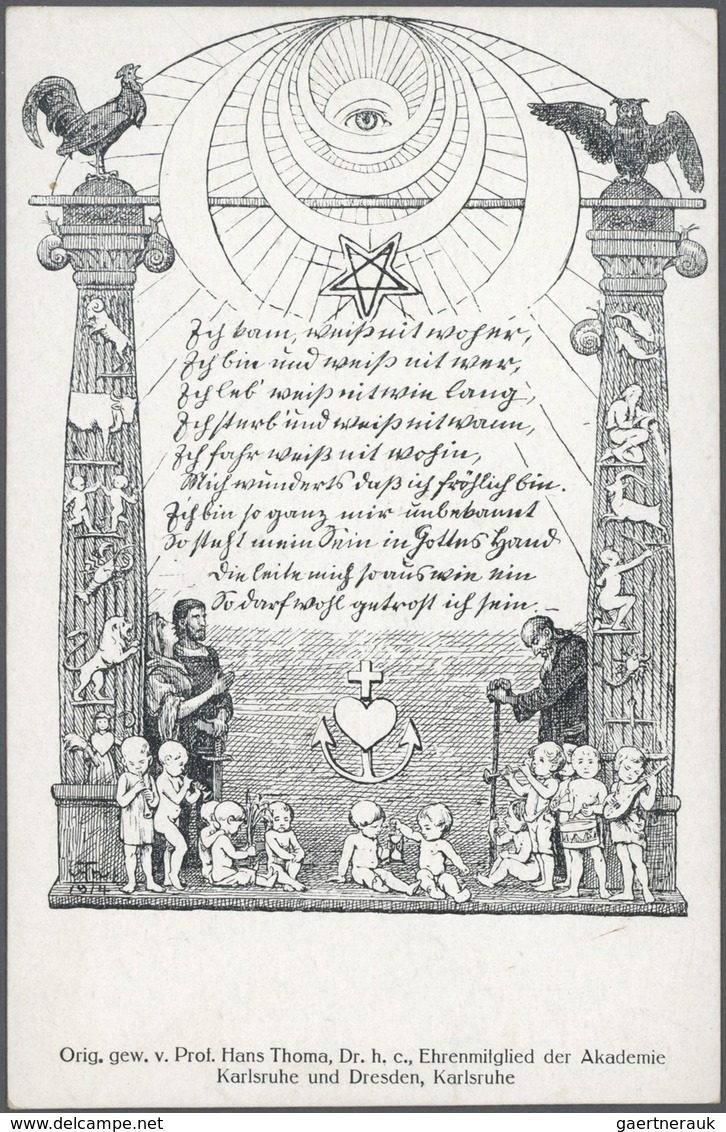 Ich kam, weiß nit woher,
Ich bin und weiß nit wer,
Ich leb' weiß nit wie lang,
Ich sterb' und weiß nit wann,
Ich fahr weiß nit wohin,
Mich wunderts daß ich fröhlich bin.
Ich bin so ganz mir unbekannt
So steht mein Sein in Gottes Hand
Die leite mich so aus wie ein
So darf wohl getrost ich sein. –
HTh
1914
Orig. gew. v. Prof. Hans Thoma, Dr. h. c., Ehrenmitglied der Akademie
Karlsruhe und Dresden, Karlsruhe
www.delcampe.net
gaertnerauk